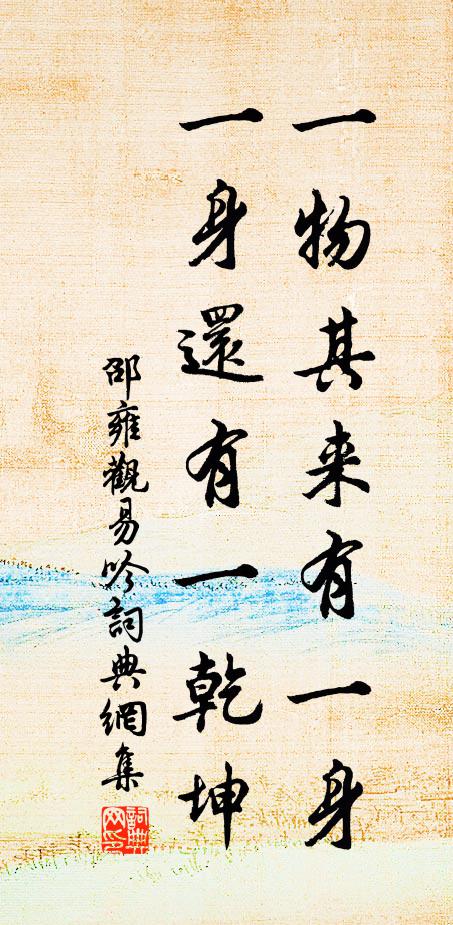 一物其来有一身
一身還有一乾坤
邵雍觀易吟詞典網集
詞典网印